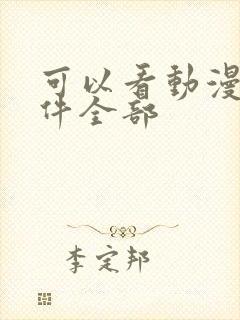 可以看動漫
件全部
李定邦